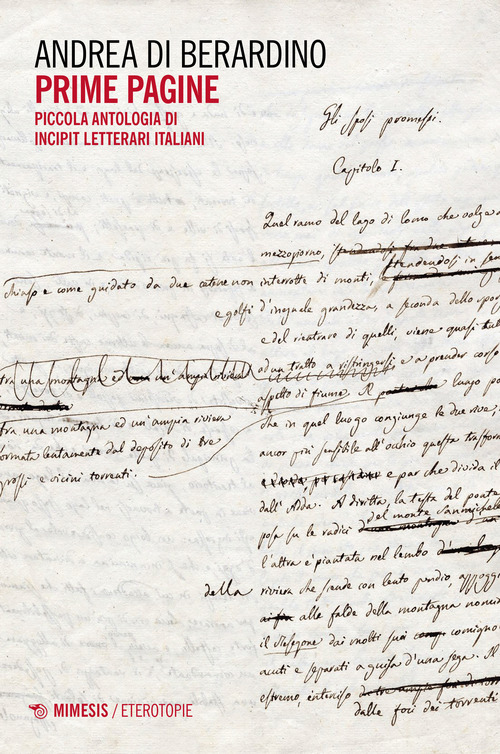 ANDREA DI BERARDINO
PRIME PAGINE
PICCOLA ANTOLOGIA DI
INCIPIT LETTERARI ITALIANI
Gli sposi promessi.
Capitolo I.
Quel ramo del lago di Como che volge a
mezzogiorno,
chiuso e come guidato da due catene non interrotte di monti,
e golfi d'ineguale grandezza, a seconda dello spor
e del rientrare di quelli, viene quasi tutt
tra una montagna ed un'ampia riviera ad un tratto a ristringersi e a prender corso
aspetto di fiume. Il luogo
tra una montagna ed un'ampia riviera che in quel luogo congiunge le due rive
formata lentamente dal deposito di tre ancor più sensibile all'occhio questa trasform
grossi e vicini torrenti. e par che divida il
dall'Adda. A diritta, la testa del ponte
del monte Sanmichele
posa su le radici
l'altra è piantata nel lembo
della riviera che scende con lento pendio
alle falde della montagna nomin
il Resegone dai molti suoi comigno
acuti e separati a guisa d'una sega. Il
estremo, interciso
dalle foci dei torrenti
MIMESIS / ETEROTOPIE